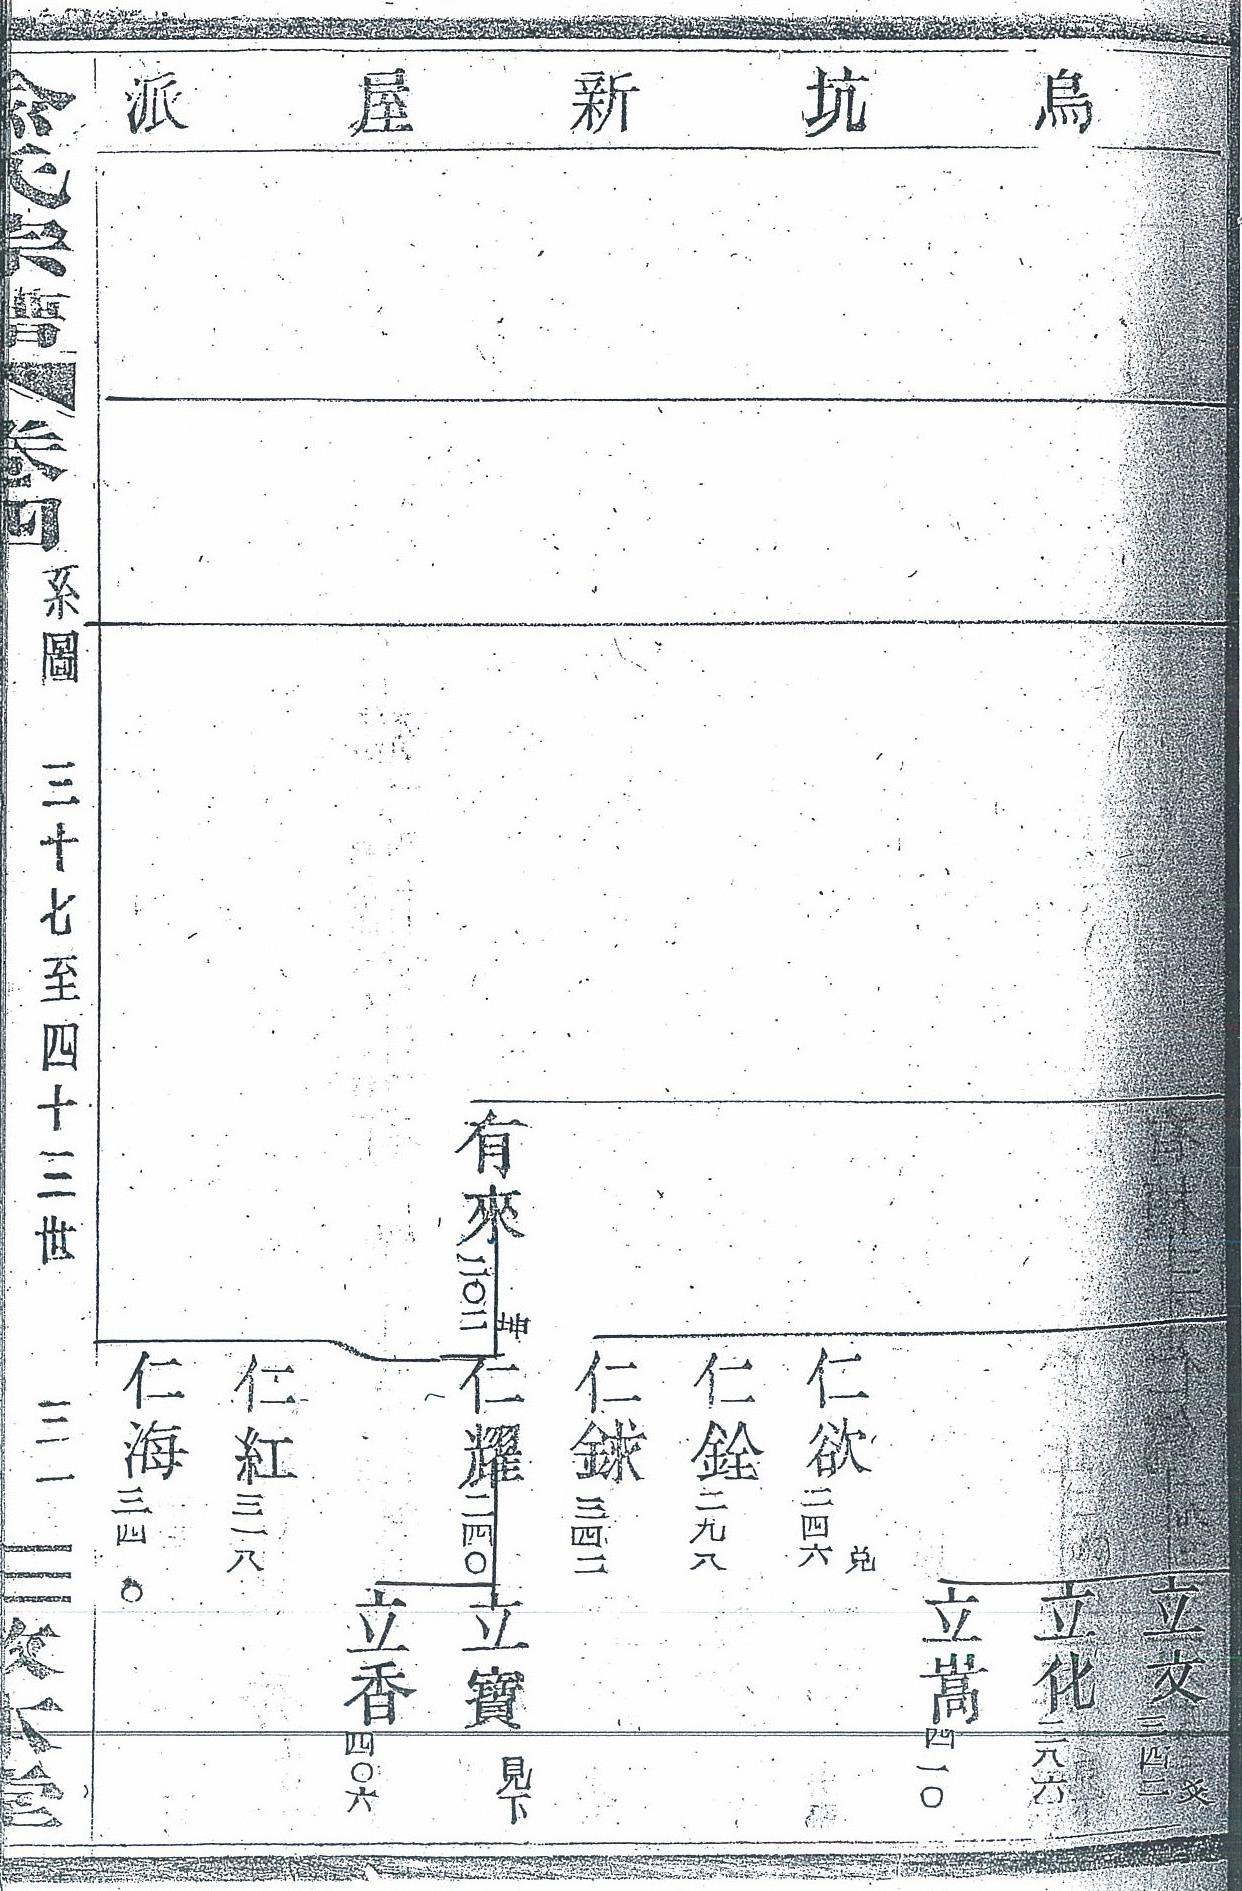 烏坑新屋派
有來 二〇二 坤
立文 三四二 爻
立化 二八六
立嵩 四一〇
仁欲 二四六 兌
仁銓 二九八
仁銶 三四二
仁耀 二四〇
立寶 見下
立香 四〇六
仁紅 三一八
仁海 三四〇
宗譜 卷四 系圖 三十七至四十二世 三一